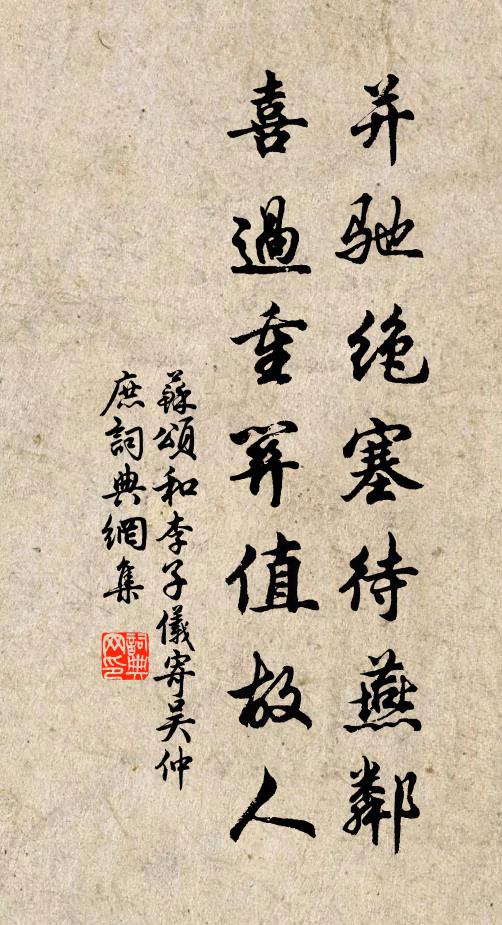 并驰绝塞待燕鄰
喜過重關值故人
蘇頌和李子儀寄吴仲
庶詞典網集
詞典网印